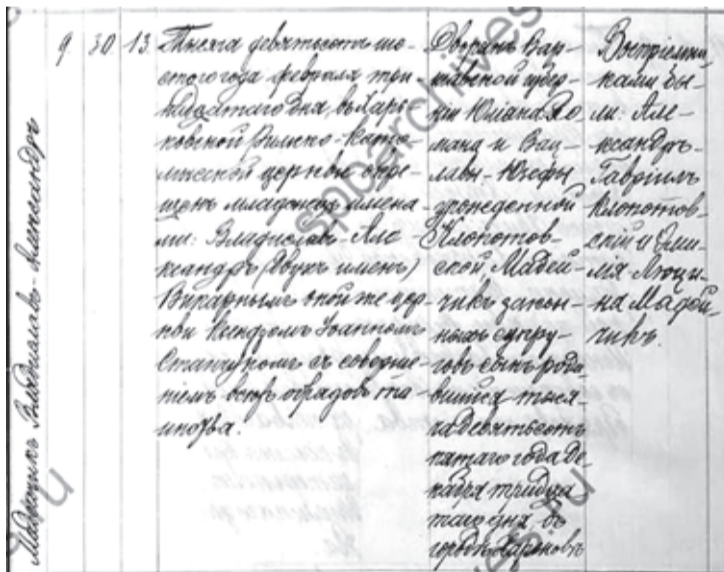 Мадейчикъ Владиславъ-Александръ
9 30 13
Тысяча девятьсотъ ше-
стого года февраля три-
надцатаго дня, въ Харь-
ковской Римско-Като-
лической церкви окре-
щенъ младенецъ имена-
ми: Владиславъ-Але-
ксандръ (двухъ именъ)
Викарнымъ оной же цер-
кви Ксендзомъ Іоанномъ
Станчукомъ съ соверше-
ніемъ всѣхъ обрядовъ та-
инства.
Дворянъ Вар-
шавской губер-
ніи Юліана Ро-
мана и Вац-
лавы-Юзефы
урожденной
Клопотов-
ской, Мадей-
чикъ закон-
ныхъ супру-
говъ сынъ родив-
шійся тыся-
ча девятьсотъ
пятаго года Де-
кабря тридца
таго дня, въ
городѣ Харьковѣ
Воспріемни-
ками бы-
ли: Але-
ксандръ-
Гавріилъ
Клопотов-
скій и Эми-
лія Люци-
на Мадей-
чикъ.
spbarchives.ru